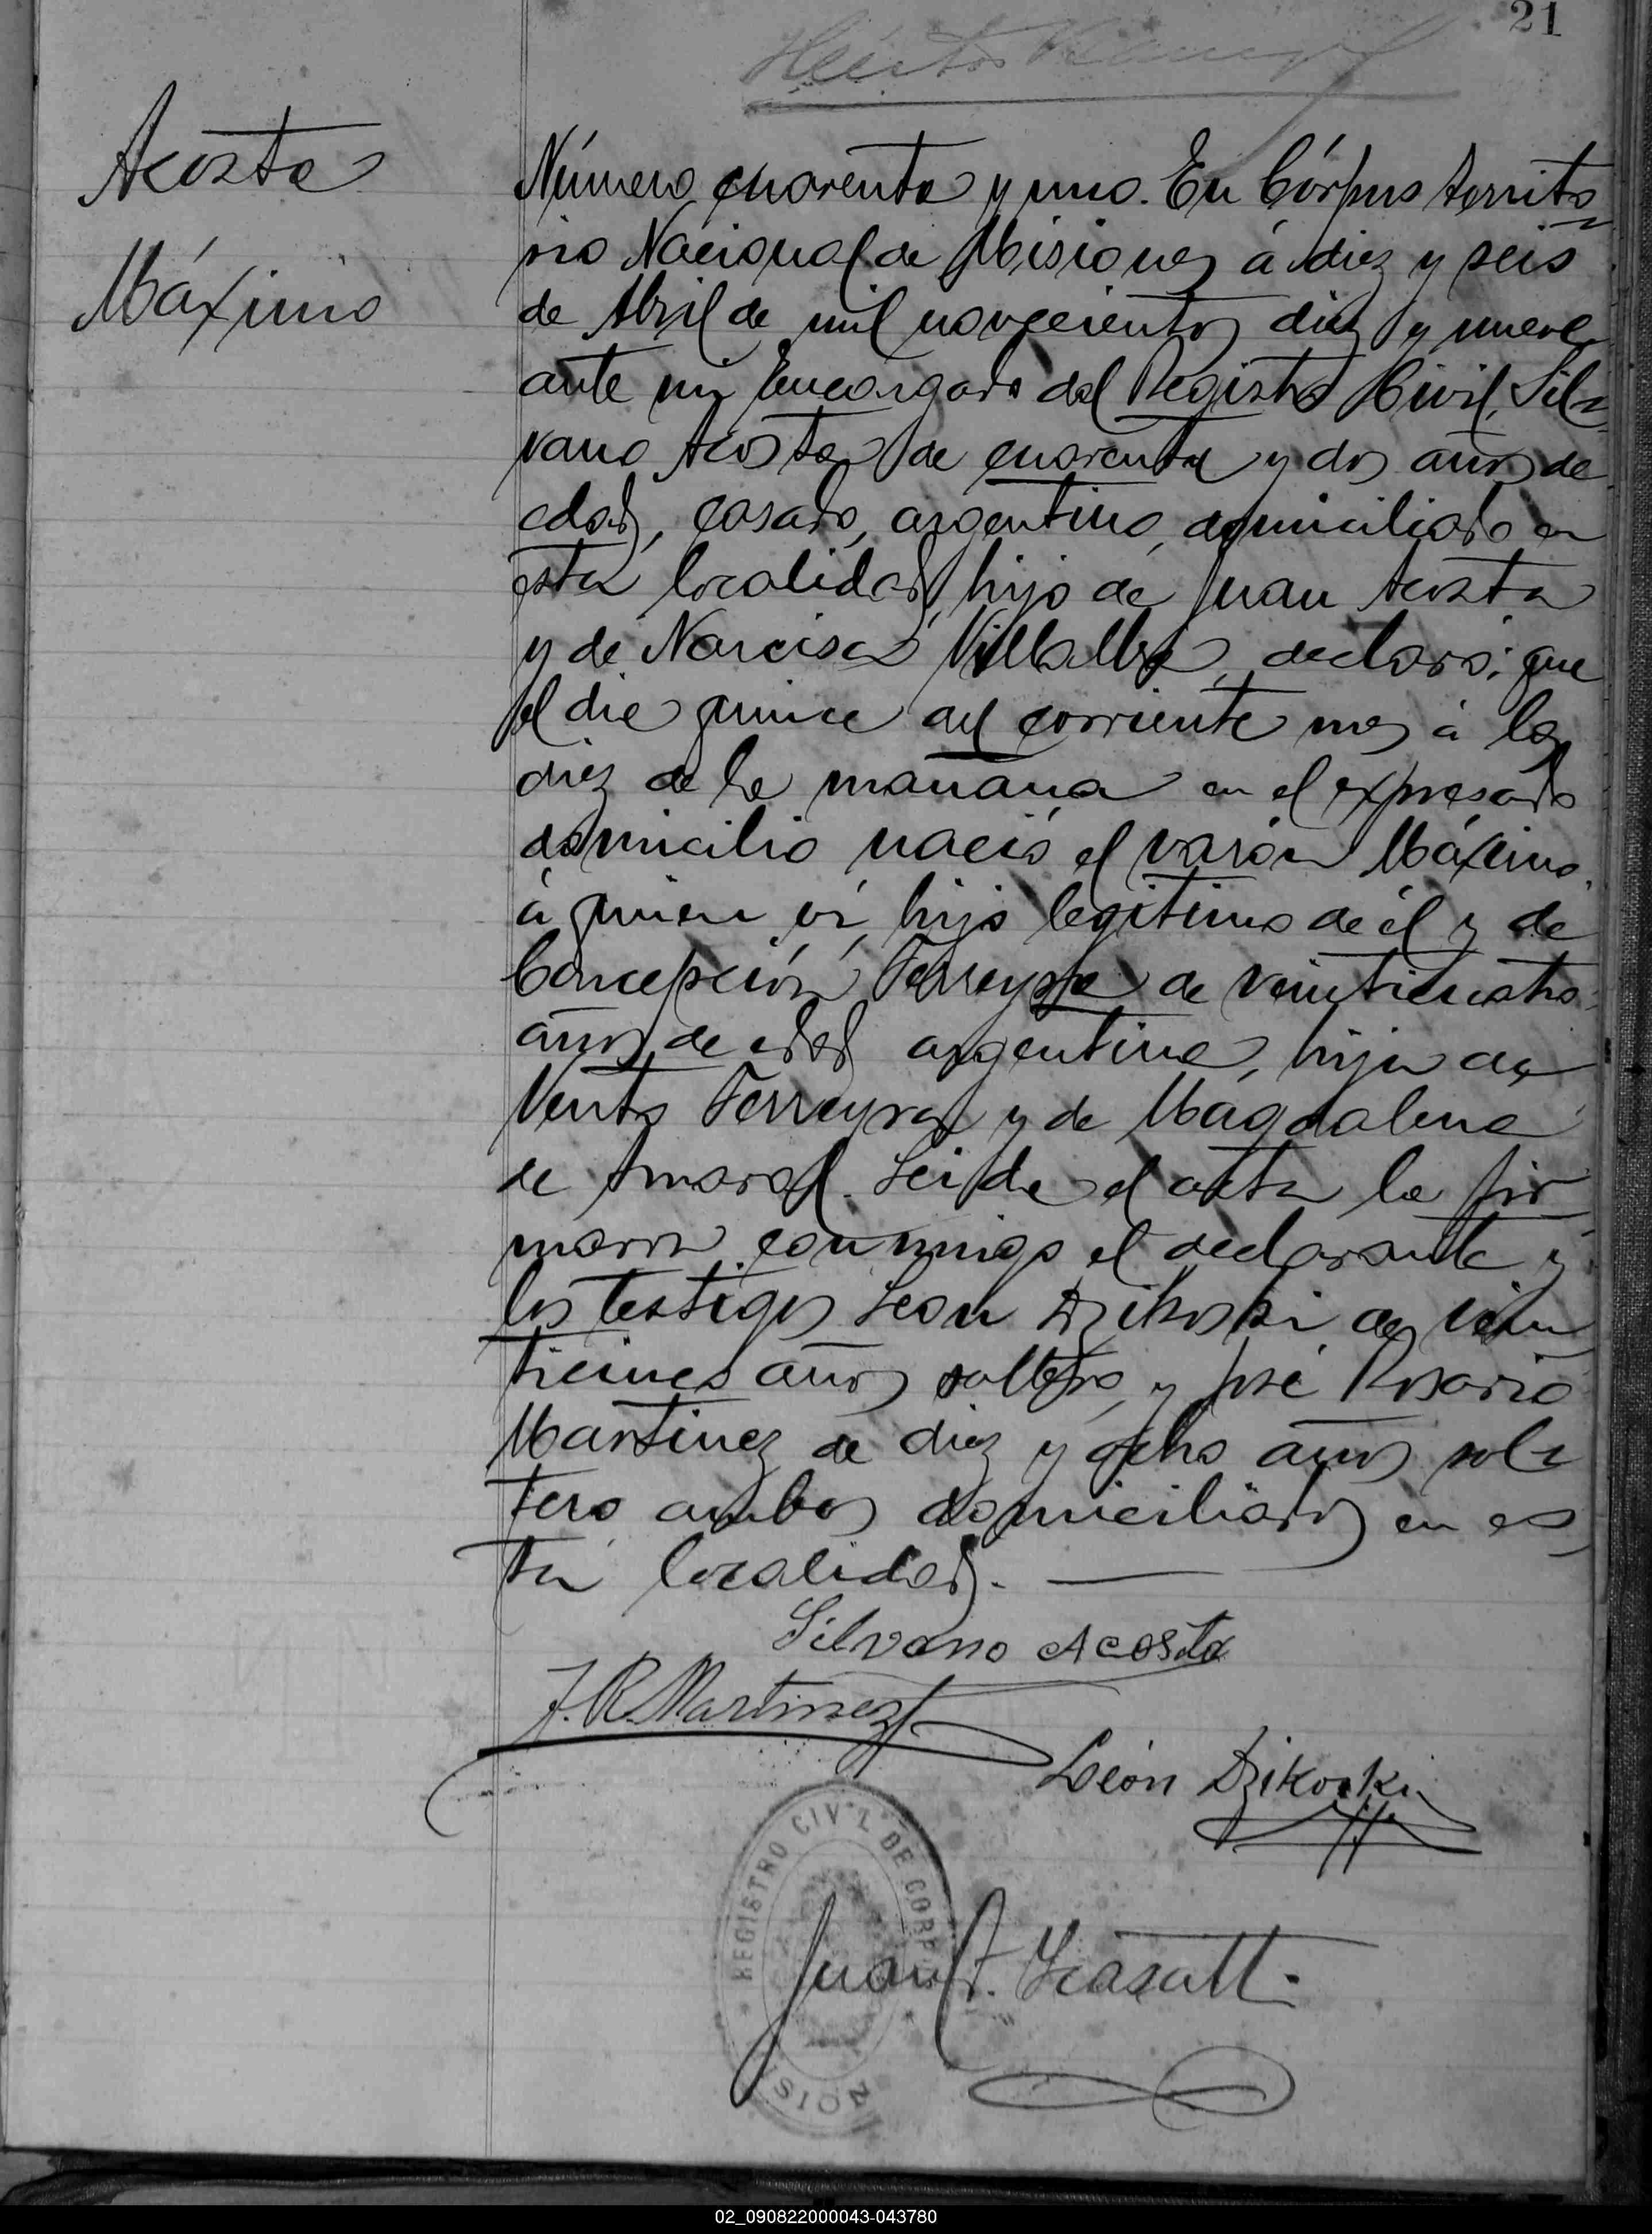 21
Acosta
Máximo
Número cuarenta y uno. En Córpus territo
rio Nacional de Misiones á diez y seis
de Abril de mil novecientos diez y nueve
ante mi Encargado del Registro Civil, Sil
vano Acosta de cuarenta y dos años de
edad, casado, argentino, domiciliado en
esta localidad, hijo de Juan Acosta
y de Narcisa Villalba, declaró: que
el dia quince del corriente mes á las
diez de la mañana en el expresado
domicilio nació el varón Máximo
á quien ví, hijo legitimo de él y de
Concepción Ferreyra de veinticuatro
años de edad argentina, hija de
Vento Ferreyra y de Magdalena
de Amaral. Leida el acta la fir
maron conmigo el declarante y
los testigos Leon Dzikoski de vein
ticinco años soltero, y José Rosario
Martinez de diez y ocho años sol
tero ambos domiciliados en es
ta localidad.
Silvano Acosta
J. R. Martinez
León Dzikoski
REGISTRO CIVIL DE CORP
SION
Juan
02_090822000043-043780